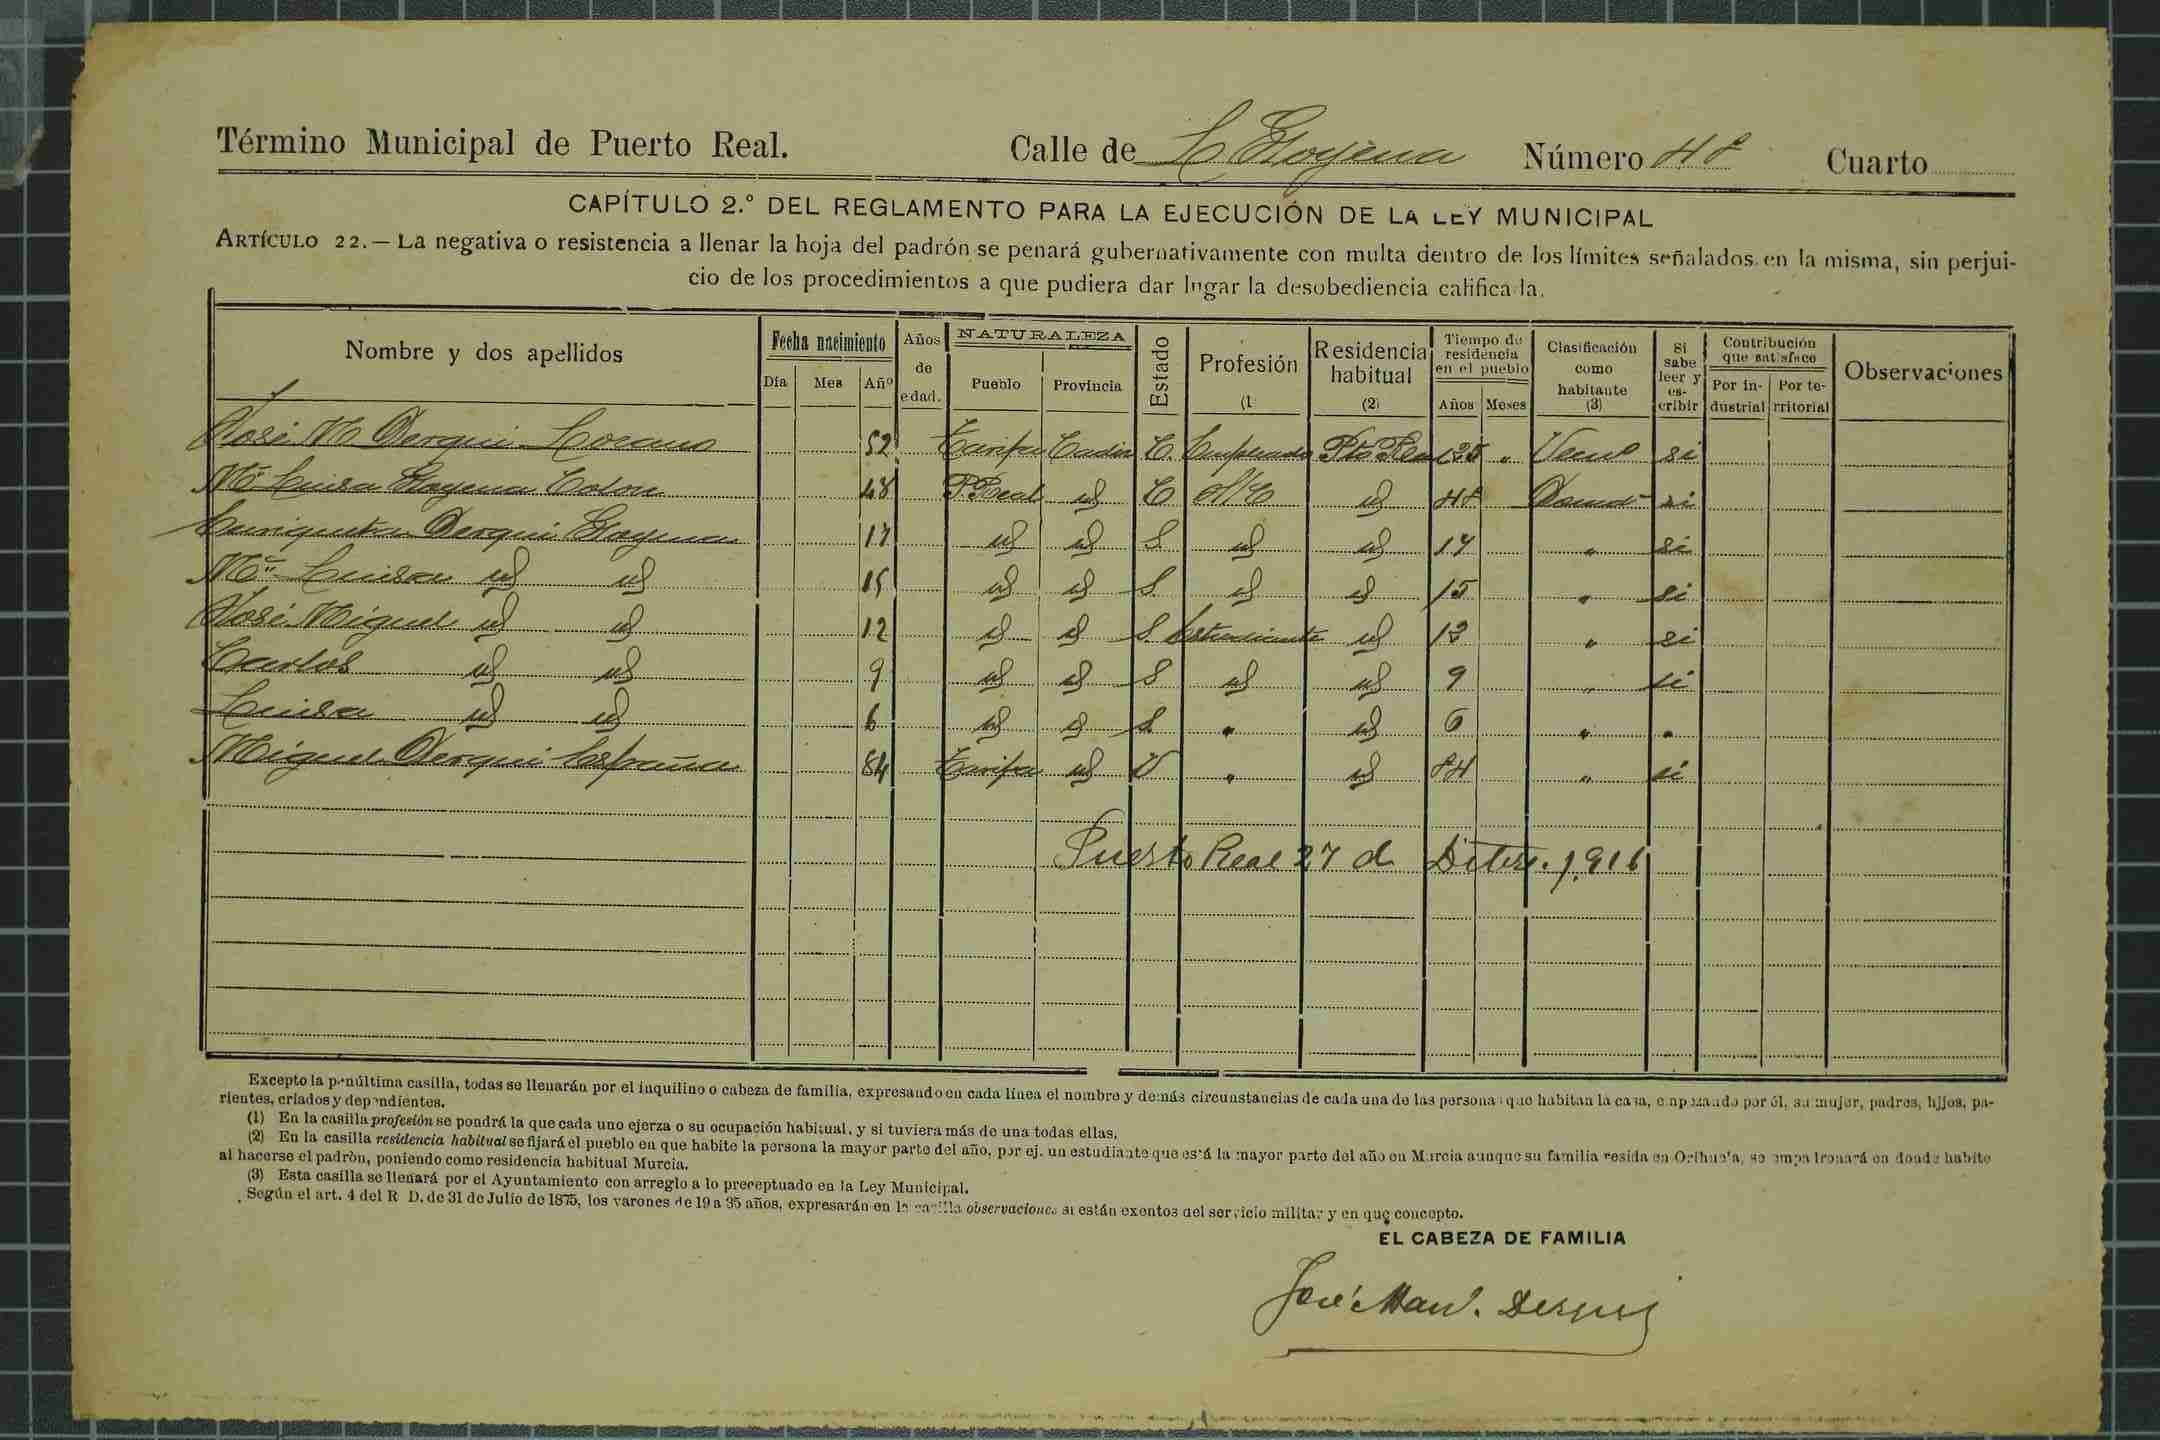 Término Municipal de Puerto Real. Calle de Número 48 Cuarto
CAPÍTULO 2.º DEL REGLAMENTO PARA LA EJECUCIÓN DE LA LEY MUNICIPAL
ARTÍCULO 22.— La negativa o resistencia a llenar la hoja del padrón se penará gubernativamente con multa dentro de los límites señalados en la misma, sin perjui-
cio de los procedimientos a que pudiera dar lugar la desobediencia calificada.
Nombre y dos apellidos Fecha nacimiento Años de edad. NATURALEZA Estado Profesión (1 Residencia habitual (2) Tiempo de residencia en el pueblo Clasificación como habitante (3) Si sabe leer y es- cribir Contribución que satisface Observaciones
Día Mes Año Pueblo Provincia Años Meses Por in- dustrial Por te- rritorial
José M Derqui Lozano 52 Tarifa Cadiz C. Empleado Pto Real " Vecno si
Mª Luisa Colon 48 P. Real id C id 48 Domd si
Enriqueta Derqui 17 id id S id id 17 " si
Mª Luisa id id 15 id id S id id 15 " si
José Miguel id id 12 id id S Estudiante id 12 " si
Carlos id id 9 id id S id id 9 " si
Luisa id id 6 id id S " id 6 " "
Miguel Derqui España 84 Tarifa id V " id 84 " si
Puerto Real 27 d Dicbre. 1,916
Excepto la penúltima casilla, todas se llenarán por el inquilino o cabeza de familia, expresando en cada línea el nombre y demás circunstancias de cada una de las personas que habitan la casa, empezando por él, su mujer, padres, hijos, pa-
rientes, criados y dependientes.
(1) En la casilla profesión se pondrá la que cada uno ejerza o su ocupación habitual, y si tuviera más de una todas ellas.
(2) En la casilla residencia habitual se fijará el pueblo en que habite la persona la mayor parte del año, por ej. un estudiante que está la mayor parte del año en Murcia aunque su familia resida en Orihuela, se empadronará en donde habite
al hacerse el padrón, poniendo como residencia habitual Murcia.
(3) Esta casilla se llenará por el Ayuntamiento con arreglo a lo preceptuado en la Ley Municipal.
Según el art. 4 del R D. de 31 de Julio de 1875, los varones de 19 a 35 años, expresarán en la casilla observaciones si están exentos del servicio militar y en que concepto.
EL CABEZA DE FAMILIA
José Manl. Derqui